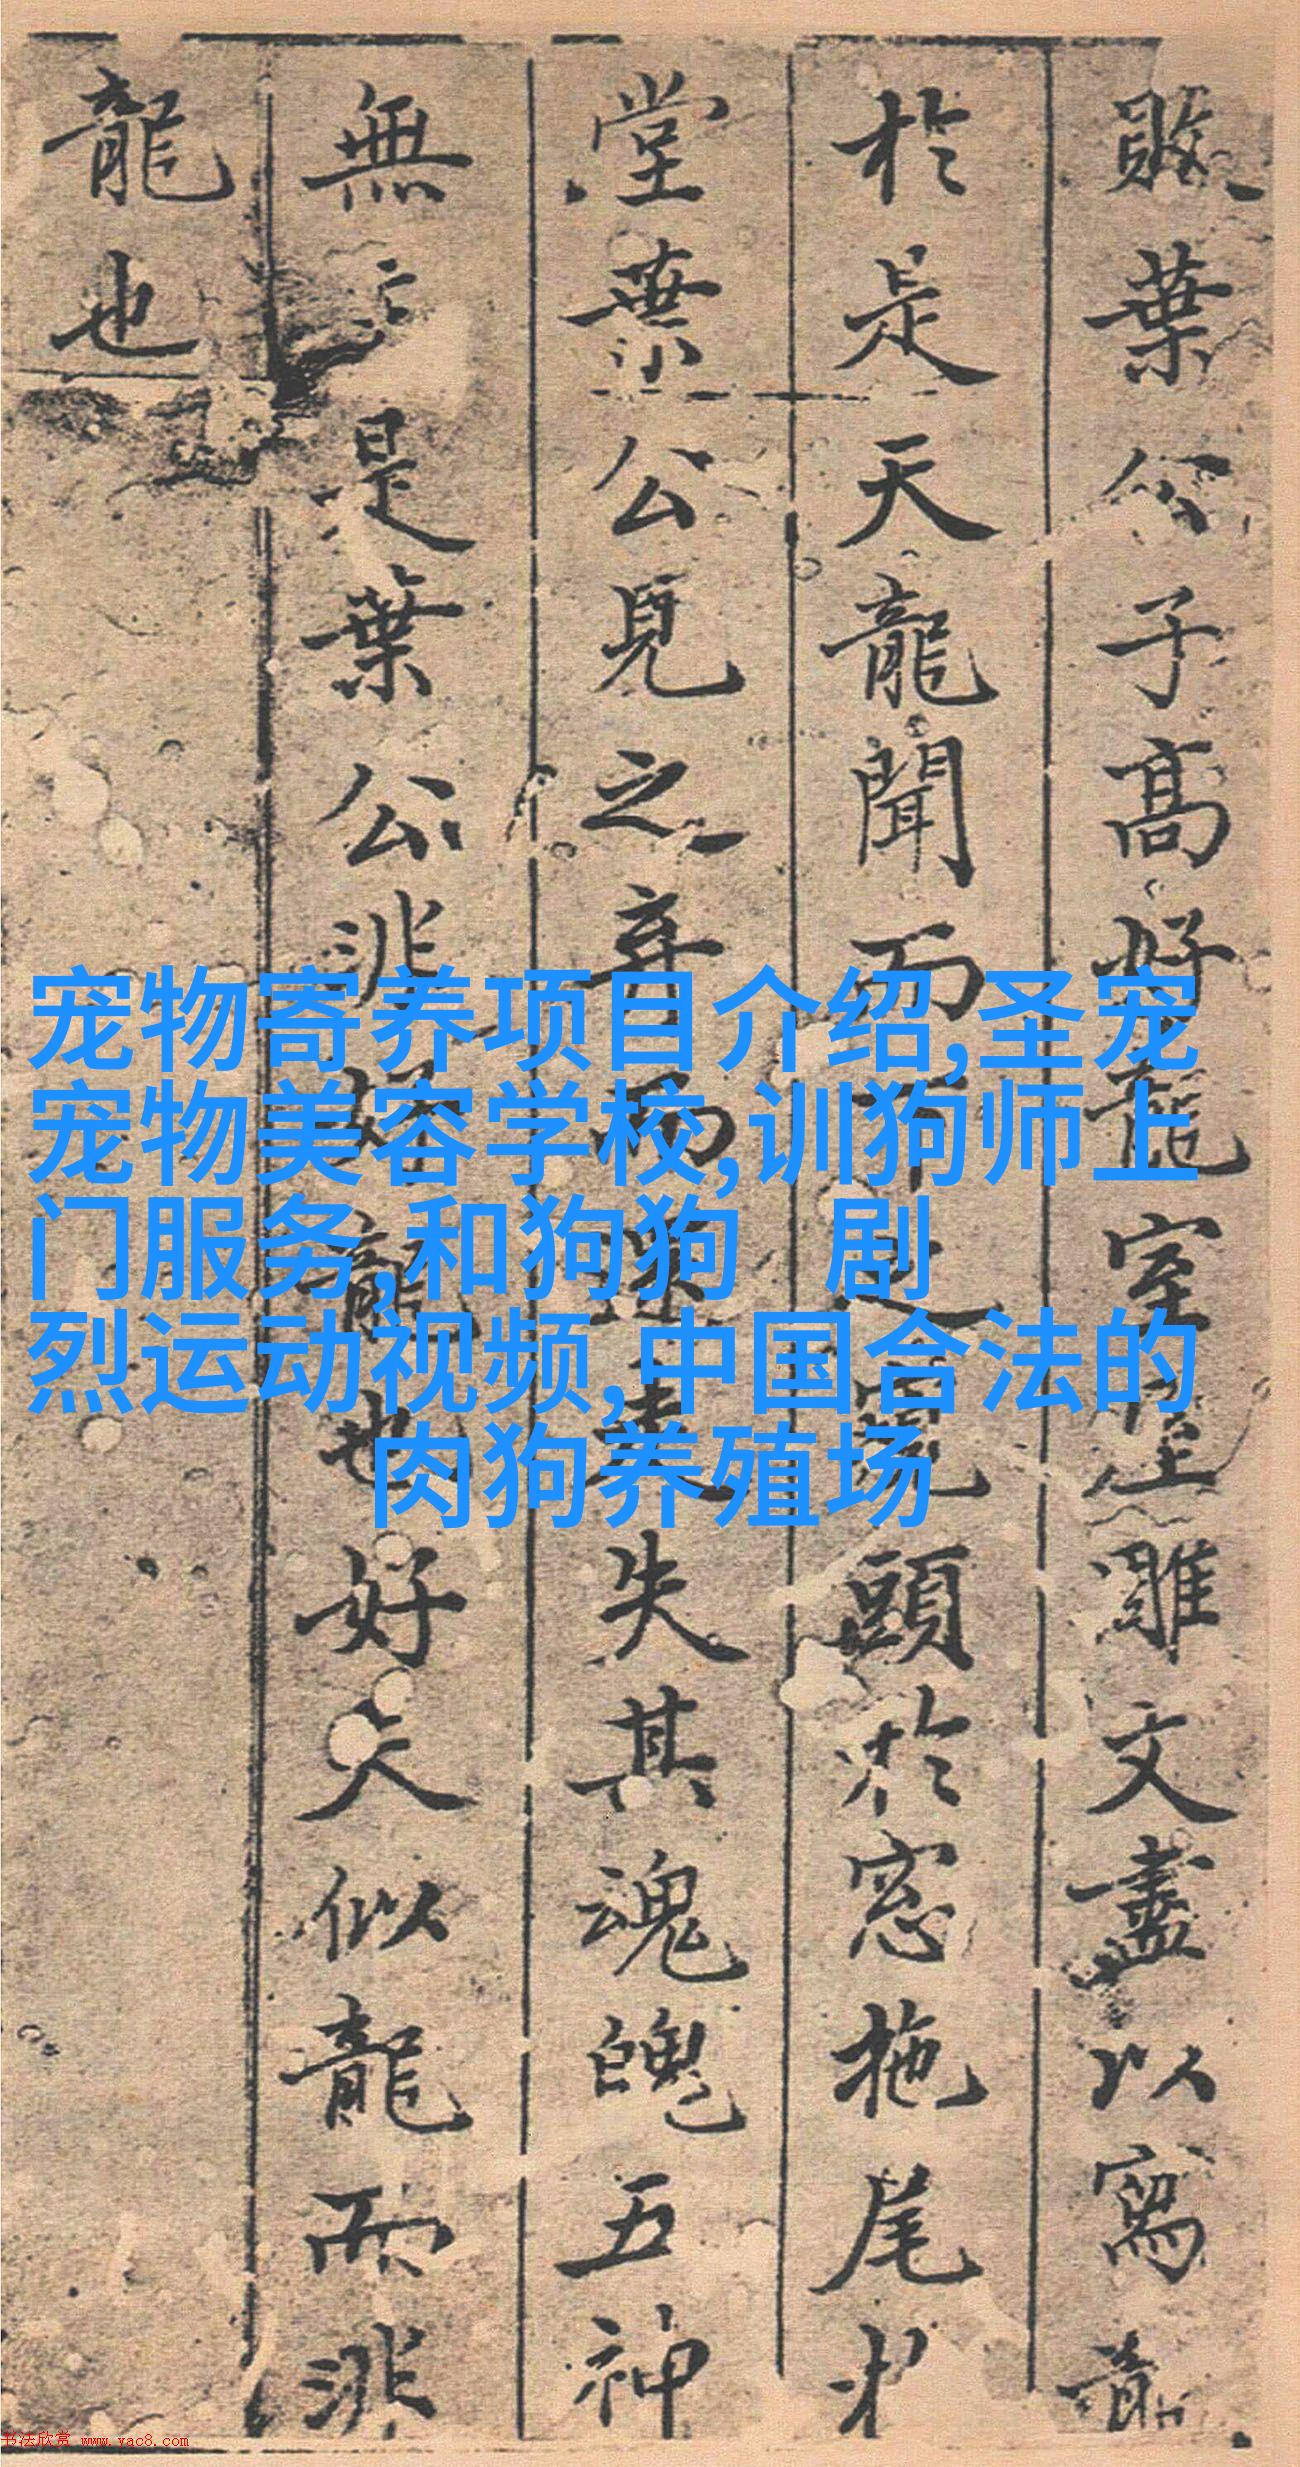 敗葉公子高好龍室屋雕文盡以寫龍
於是天龍聞而下之窺頭於窓拖尾於
堂葉公見之弃而還走失其魂魄五神
無主是葉公非好龍也好夫似龍而非
龍也
宠物寄养项目介绍,圣宠
宠物美容学校,训狗师上
门服务,和狗狗 剧
烈运动视频,中国合法的
肉狗养殖场
书法欣赏 www.yac8.com